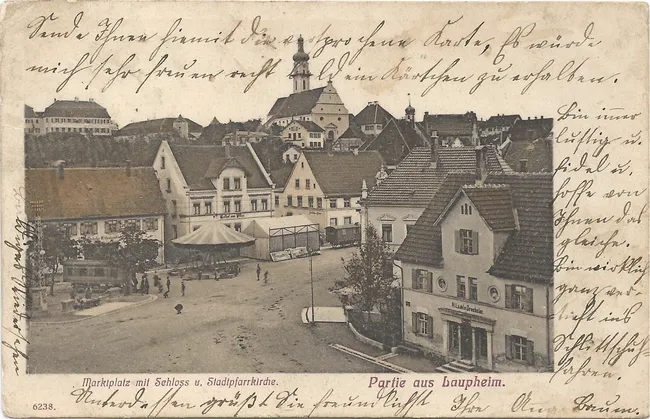 Sende Ihnen hiemit die versprochene Karte, Es würde
mich sehr freuen recht bald ein Kärtchen zu erhalten.
Bin immer
lustig u.
fidel u.
hoffe von
Ihnen das
gleiche.
Bin wirklich
ganz ver-
Schlittschuh-
fahren.
Marktplatz mit Schloss u. Stadtpfarrkirche.
Partie aus Laupheim.
6238.
Unterdessen grüßt Sie freundlichst Ihre Anna Baum.